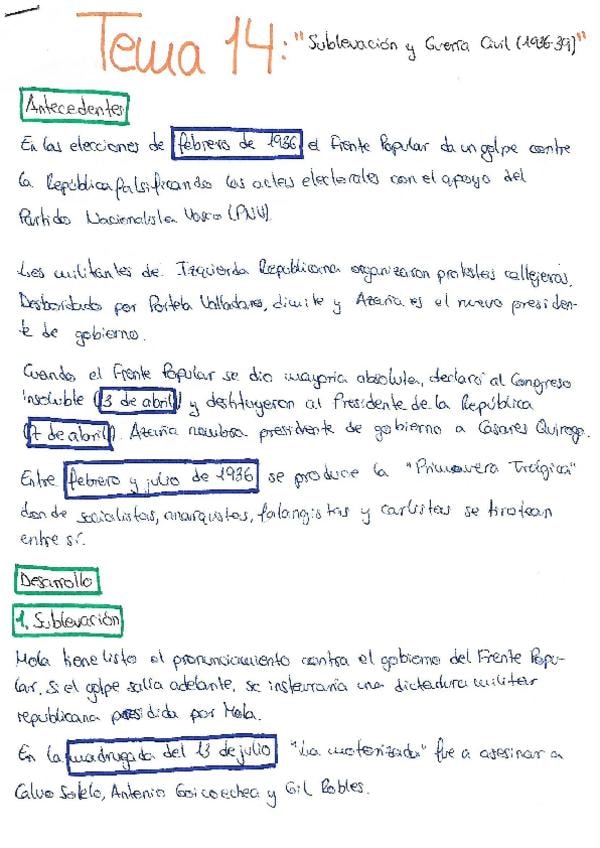 Tema 14: "Sublevación y Guerra Civil (1936-39)"
Antecedentes
En las elecciones de febrero de 1936 el Frente Popular da un golpe contra
la República falsificando las actas electorales con el apoyo del
Partido Nacionalista Vasco (PNV)
Los militantes de Izquierda Republicana organizaron protestas callejeras.
Desbordado por Portela Valladares, dimite y Azaña es el nuevo presiden-
te de gobierno.
Cuando el Frente Popular se dio mayoría absoluta, declaró al Congreso
insoluible (3 de abril) y destituyeron al Presidente de la República
(7 de abril). Azaña nombra presidente de gobierno a Casares Quiroga.
Entre febrero y julio de 1936 se produce la "Primavera Trágica"
donde socialistas, anarquistas, falangistas y carlistas se tirotean
entre sí.
Desarrollo
1. Sublevación
Mola tiene listo el pronunciamiento contra el gobierno del Frente Popu-
lar. Si el golpe salía adelante, se instauraría una dictadura militar
republicana presidida por Mola.
En la madrugada del 13 de julio "La motorizada" fue a asesinar a
Calvo Sotelo, Antonio Goicoechea y Gil Robles.